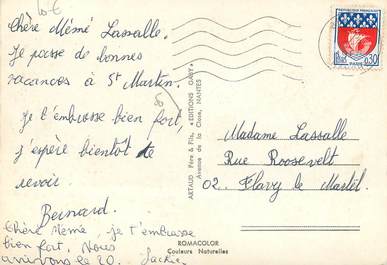 Chère Mémé Lassalle.
Je passe de bonnes
vacances à St Martin.
Je t'embrasse bien fort,
j'espère bientôt te
revoir
Bernard.
Chère Mémé, je t'embrasse
bien fort, Nous
arrivons le 20. Jackie
ARTAUD Père & Fils, "EDITIONS GABY"
Avenue de la Close, NANTES
ROMACOLOR
Couleurs Naturelles
REPUBLIQUE FRANÇAISE
0,30
PARIS
Madame Lassalle
Rue Roosevelt
02. Flavy le Martel